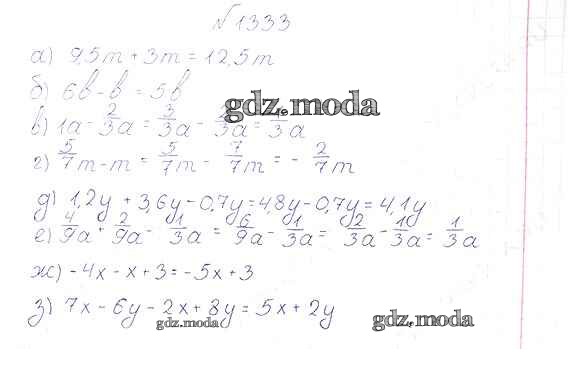 №1333
а) 9,5m + 3m = 12,5m
б) 6b - b = 5b
gdz.moda
в) 1a - 2/3a = 3/3a - 2/3a = 1/3a
г) 5/7m - m = 5/7m - 7/7m = - 2/7m
д) 1,2y + 3,6y - 0,7y = 4,8y - 0,7y = 4,1y
е) 4/9a + 2/9a - 1/3a = 6/9a - 1/3a = 2/3a - 1/3a = 1/3a
ж) -4x - x + 3 = -5x + 3
з) 7x - 6y - 2x + 8y = 5x + 2y
gdz.moda
gdz.moda